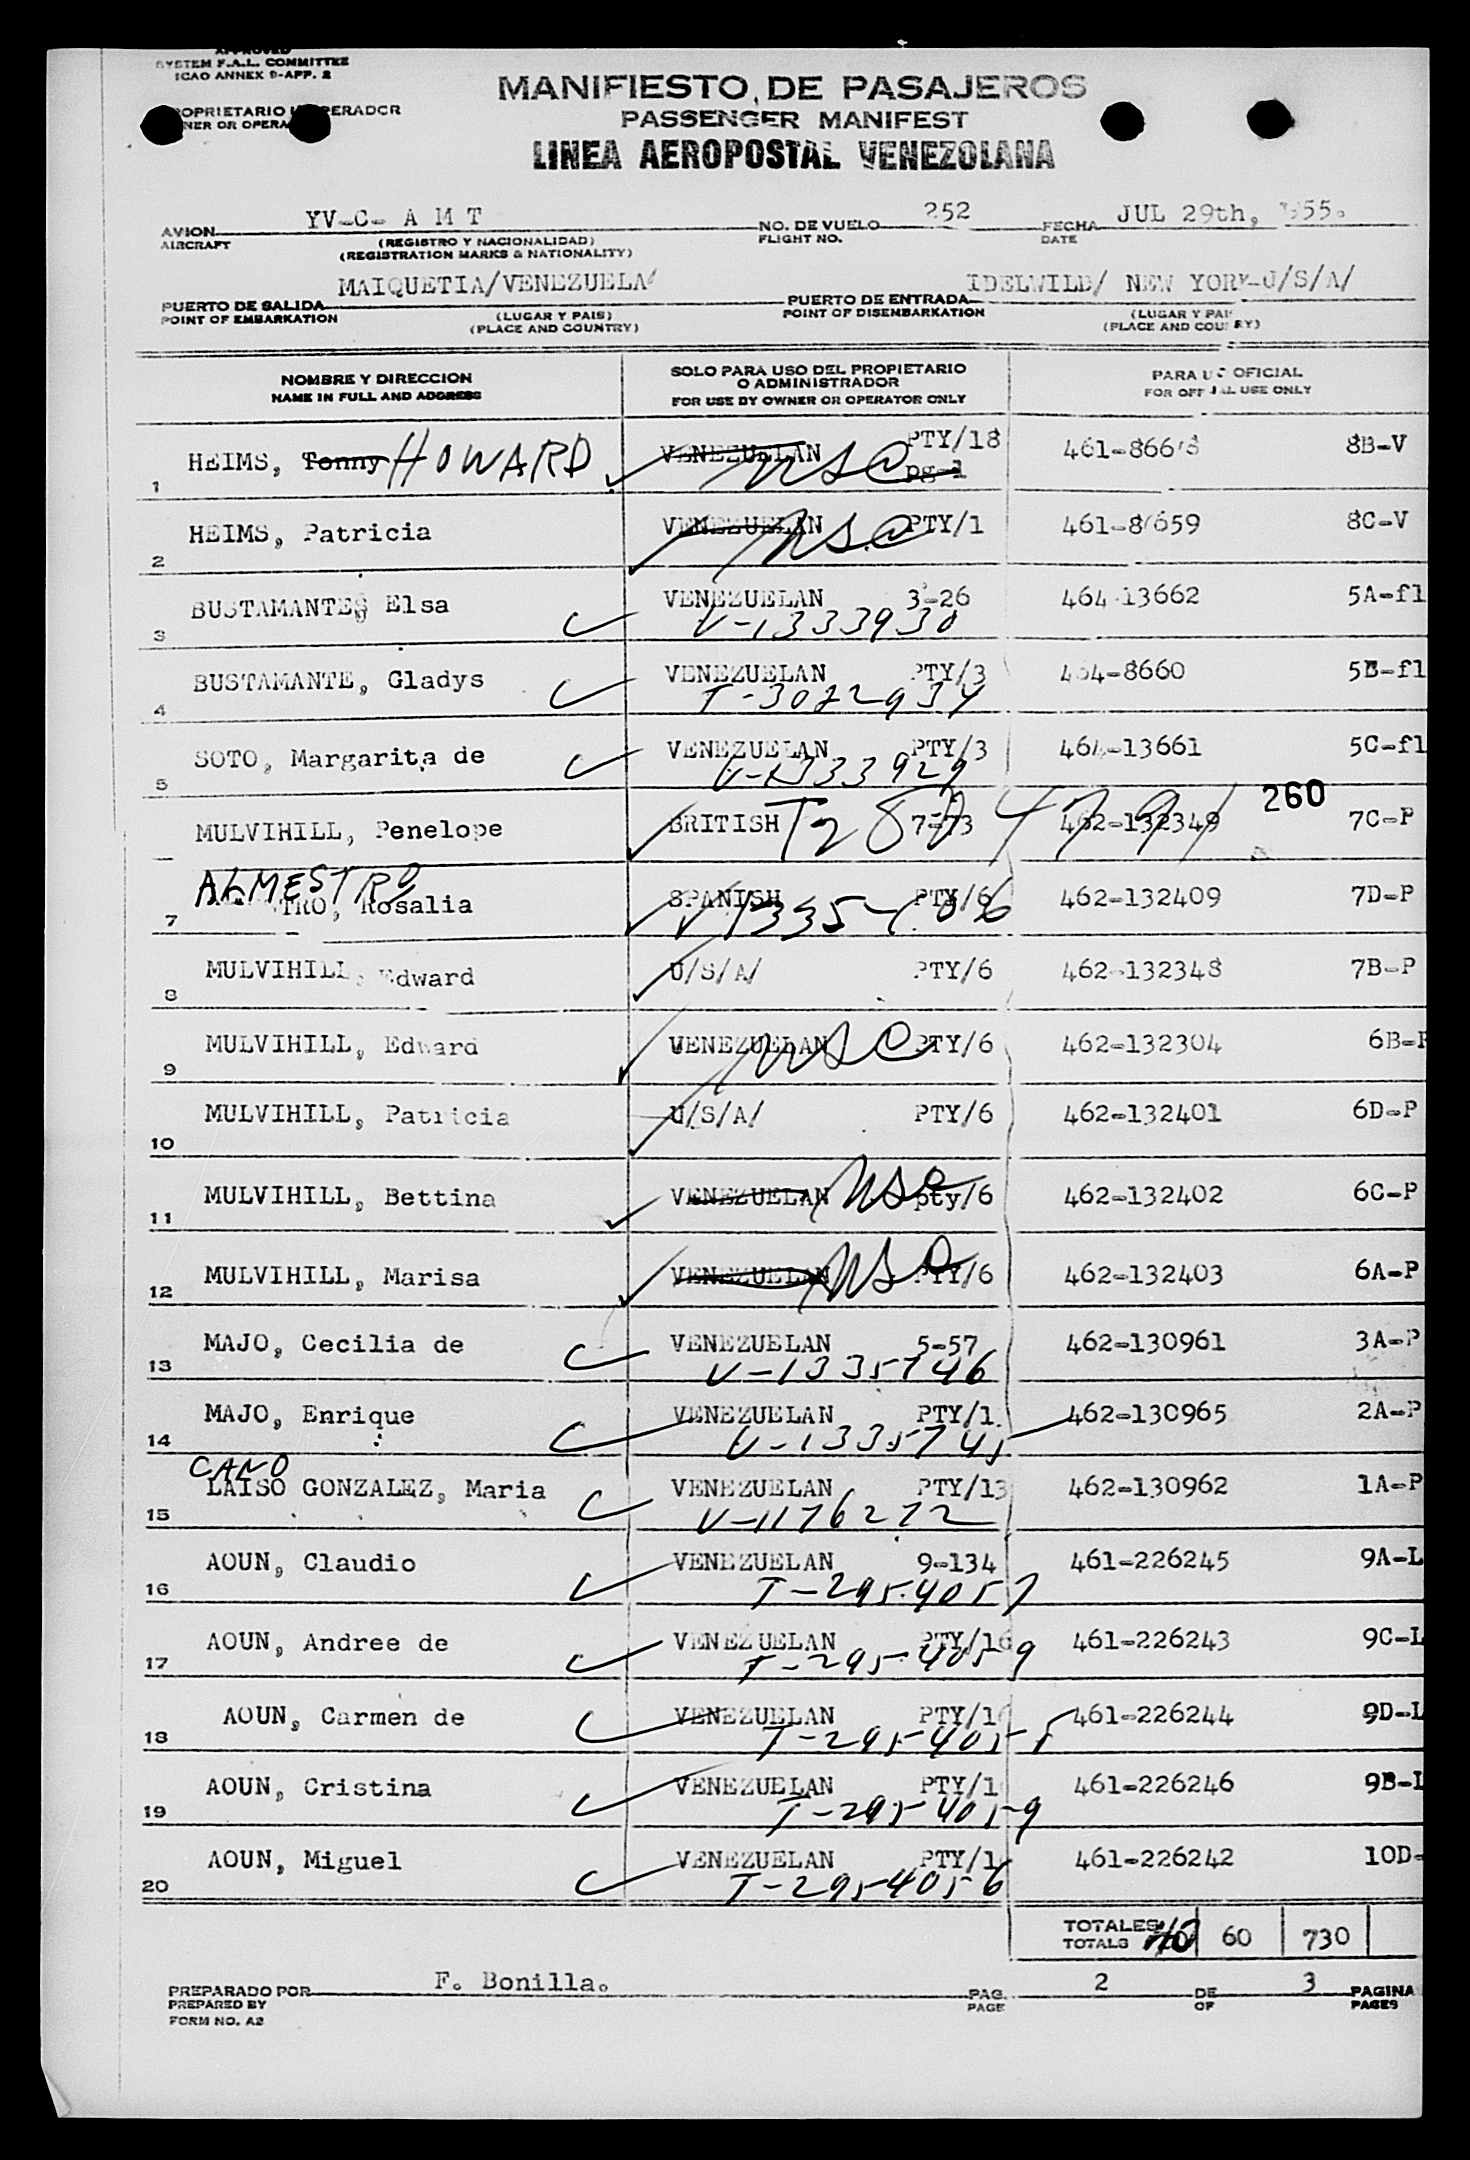 APPROVED
SYSTEM F.A.L. COMMITTEE
ICAO ANNEX 9-APP. 2
MANIFIESTO DE PASAJEROS
PASSENGER MANIFEST
LINEA AEROPOSTAL VENEZOLANA
AVION YV-C- A M T NO. DE VUELO 252 FECHA JUL 29th, 1955.
AIRCRAFT (REGISTRO Y NACIONALIDAD) FLIGHT NO. DATE
(REGISTRATION MARKS & NATIONALITY)
PUERTO DE SALIDA MAIQUETIA/VENEZUELA/ PUERTO DE ENTRADA IDELWILD/ NEW YORK-U/S/A/
POINT OF EMBARKATION (LUGAR Y PAIS) POINT OF DISEMBARKATION (LUGAR Y PAI
(PLACE AND COUNTRY) (PLACE AND COU RY)
NOMBRE Y DIRECCION SOLO PARA USO DEL PROPIETARIO PARA U O OFICIAL
O ADMINISTRADOR
NAME IN FULL AND ADDRESS FOR USE BY OWNER OR OPERATOR ONLY FOR OFF AL USE ONLY
1 HEIMS, Tonny HOWARD VENEZUELAN USC PTY/18 pg-1 8B-V
2 HEIMS, Patricia VENEZUELAN USC PTY/1 8C-V
3 BUSTAMANTES Elsa VENEZUELAN 3-26 464-13662 5A-fl
V-1333930
4 BUSTAMANTE, Gladys VENEZUELAN PTY/3 464-8660 5B-fl
T-3022934
5 SOTO, Margarita de VENEZUELAN PTY/3 464-13661 5C-fl
V-1333929
260
MULVIHILL, Penelope BRITISH 7-73 462-132349 7C-P
ALMESTRO
7 TRO, Rosalia SPANISH PTY/6 462-132409 7D-P
8 MULVIHILL, Edward U/S/A/ PTY/6 462-132348 7B-P
9 MULVIHILL, Edward VENEZUELAN USC PTY/6 462-132304 6B-P
10 MULVIHILL, Patricia U/S/A/ PTY/6 462-132401 6D-P
11 MULVIHILL, Bettina VENEZUELAN USC pty/6 462-132402 6C-P
12 MULVIHILL, Marisa VENEZUELAN USC PTY/6 462-132403 6A-P
13 MAJO, Cecilia de VENEZUELAN 5-57 462-130961 3A-P
V-1335746
14 MAJO, Enrique VENEZUELAN PTY/1 462-130965 2A-P
V-1335745
CANO
15 LAISO GONZALEZ, Maria VENEZUELAN PTY/13 462-130962 1A-P
V-1176272
16 AOUN, Claudio VENEZUELAN 9-134 461-226245 9A-L
T-2954057
17 AOUN, Andree de VENEZUELAN PTY/16 461-226243 9C-L
T-2954059
18 AOUN, Carmen de VENEZUELAN PTY/1 461-226244 9D-L
T-2954055
19 AOUN, Cristina VENEZUELAN PTY/1 461-226246 9B-L
T-2954059
20 AOUN, Miguel VENEZUELAN PTY/1 461-226242 10D-
T-2954056
TOTALES
TOTALS 40 60 730
PREPARADO POR F. Bonilla. PAG. 2 DE 3 PAGINA
PREPARED BY PAGE OF PAGES
FORM NO. A2